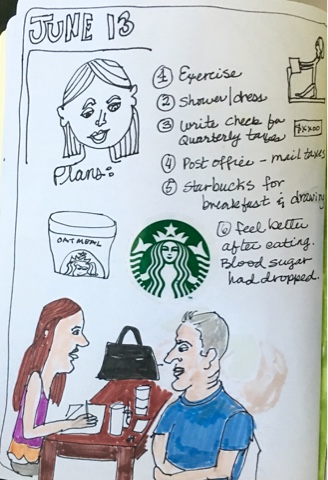 JUNE 13
① Exercise
② Shower/dress
③ Write check for
Quarterly taxes
$XX00
④ Post office - mail taxes
Plans:
⑤ Starbucks for
breakfast & drawing
⑥ feel better
after eating.
Blood sugar
had dropped.
OATMEAL